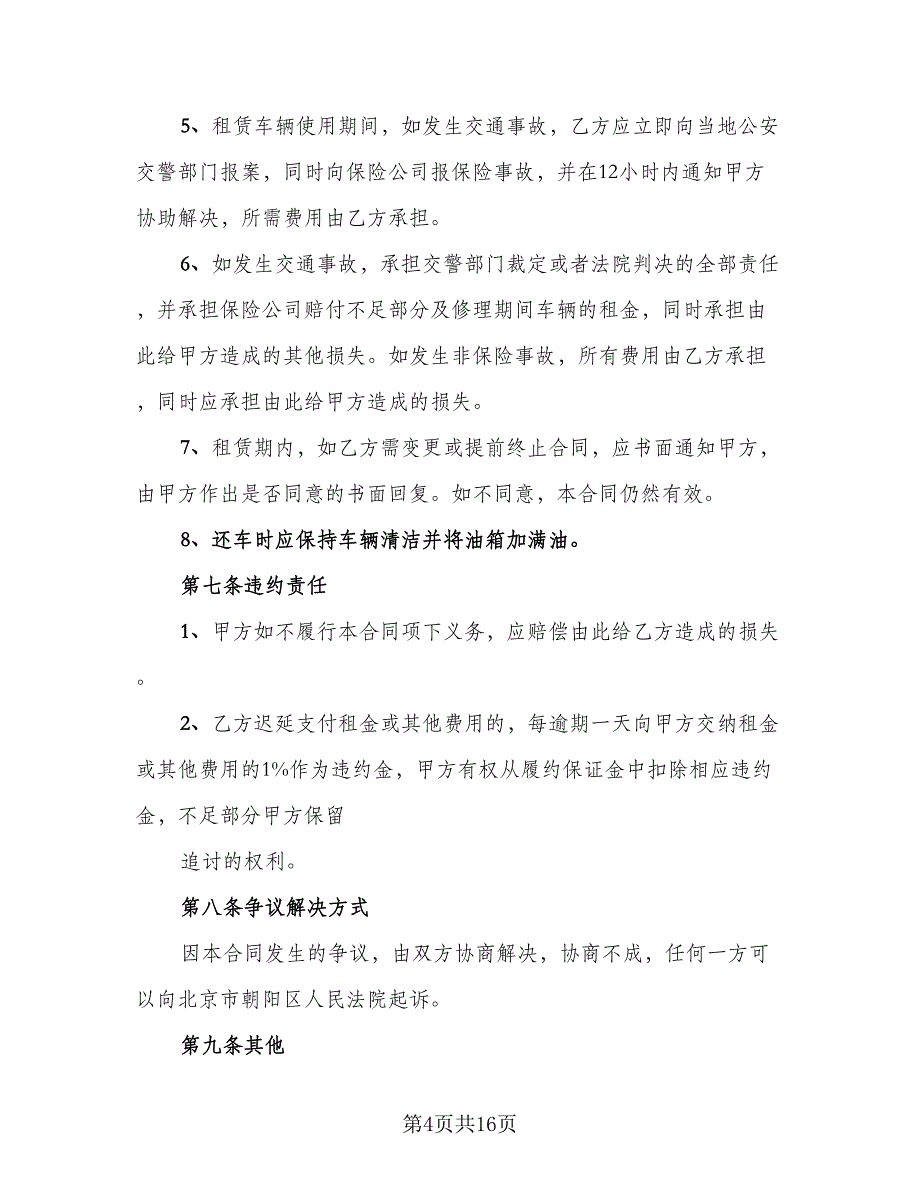 5、租赁车辆使用期间，如发生交通事故，乙方应立即向当地公安
交警部门报案，同时向保险公司报保险事故，并在12小时内通知甲方
协助解决，所需费用由乙方承担。
6、如发生交通事故，承担交警部门裁定或者法院判决的全部责任
，并承担保险公司赔付不足部分及修理期间车辆的租金，同时承担由
此给甲方造成的其他损失。如发生非保险事故，所有费用由乙方承担
，同时应承担由此给甲方造成的损失。
7、租赁期内，如乙方需变更或提前终止合同，应书面通知甲方，
由甲方作出是否同意的书面回复。如不同意，本合同仍然有效。
8、还车时应保持车辆清洁并将油箱加满油。
第七条违约责任
1、甲方如不履行本合同项下义务，应赔偿由此给乙方造成的损失
。
2、乙方迟延支付租金或其他费用的，每逾期一天向甲方交纳租金
或其他费用的1%作为违约金，甲方有权从履约保证金中扣除相应违约
金，不足部分甲方保留
追讨的权利。
第八条争议解决方式
因本合同发生的争议，由双方协商解决，协商不成，任何一方可
以向北京市朝阳区人民法院起诉。
第九条其他
第4页共16页